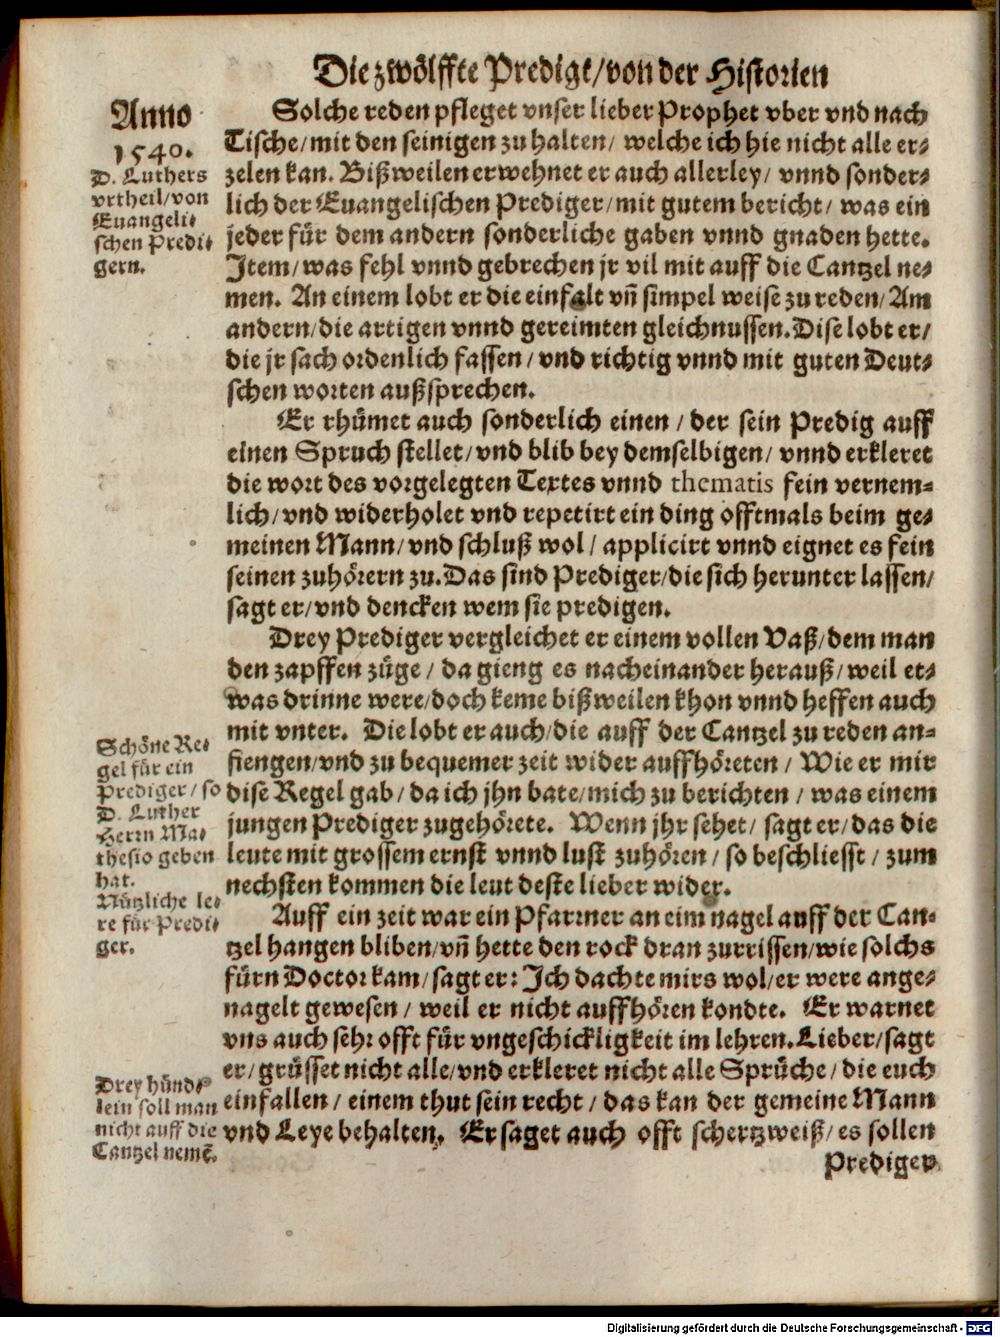 Die zwölffte Predigt/von der Historien
Anno
1540.
D. Luthers
vrtheil/von
Euangeli-
schen Predi-
gern.
Solche reden pfleget vnser lieber Prophet vber vnd nach
Tische/mit den seinigen zu halten/ welche ich hie nicht alle er-
zelen kan. Bißweilen erwehnet er auch allerley/ vnnd sonder-
lich der Euangelischen Prediger/mit gutem bericht/ was ein
jeder für dem andern sonderliche gaben vnnd gnaden hette.
Item/was fehl vnnd gebrechen jr vil mit auff die Cantzel ne-
men. An einem lobt er die einfalt vñ simpel weise zu reden/Am
andern/die artigen vnnd gereimten gleichnussen. Dise lobt er/
die jr sach ordenlich fassen/vnd richtig vnnd mit guten Deut-
schen worten außsprechen.
Er rhümet auch sonderlich einen/der sein Predig auff
einen Spruch stellet/vnd blib bey demselbigen/ vnnd erkleret
die wort des vorgelegten Textes vnnd thematis fein vernem-
lich/vnd widerholet vnd repetirt ein ding offtmals beim ge-
meinen Mann/vnd schluß wol/ applicirt vnnd eignet es fein
seinen zuhörern zu. Das sind Prediger/die sich herunter lassen/
sagt er/vnd dencken wem sie predigen.
Drey Prediger vergleichet er einem vollen Vaß/dem man
den zapffen züge/ da gieng es nacheinander herauß/weil et-
was drinne were/doch keme bißweilen khon vnnd heffen auch
mit vnter. Die lobt er auch/die auff der Cantzel zu reden an-
fiengen/vnd zu bequemer zeit wider auffhöreten/ Wie er mir
dise Regel gab/da ich jhn bate/mich zu berichten/was einem
jungen Prediger zugehörete. Wenn jhr sehet/ sagt er/das die
leute mit grossem ernst vnnd lust zuhören/so beschliesst/zum
nechsten kommen die leut deste lieber wider.
Schöne Re-
gel für ein
Prediger/so
D. Luther
Herrn Ma-
thesio geben
hat.
Nützliche le-
re für Predi-
ger.
Auff ein zeit war ein Pfarrner an eim nagel auff der Can-
tzel hangen bliben/vñ hette den rock dran zurrissen/wie solchs
fürn Doctor kam/sagt er: Ich dachte mirs wol/er were ange-
nagelt gewesen/ weil er nicht auffhören kondte. Er warnet
vns auch sehr offt für vngeschickligkeit im lehren. Lieber/sagt
er/grüsset nicht alle/vnd erkleret nicht alle Sprüche/die euch
einfallen/einem thut sein recht/das kan der gemeine Mann
vnd Leye behalten. Er saget auch offt schertzweiß/es sollen
Drey hünd-
lein soll man
nicht auff die
Cantzel nemẽ.
Prediger
Digitalisierung gefördert durch die Deutsche Forschungsgemeinschaft - DFG